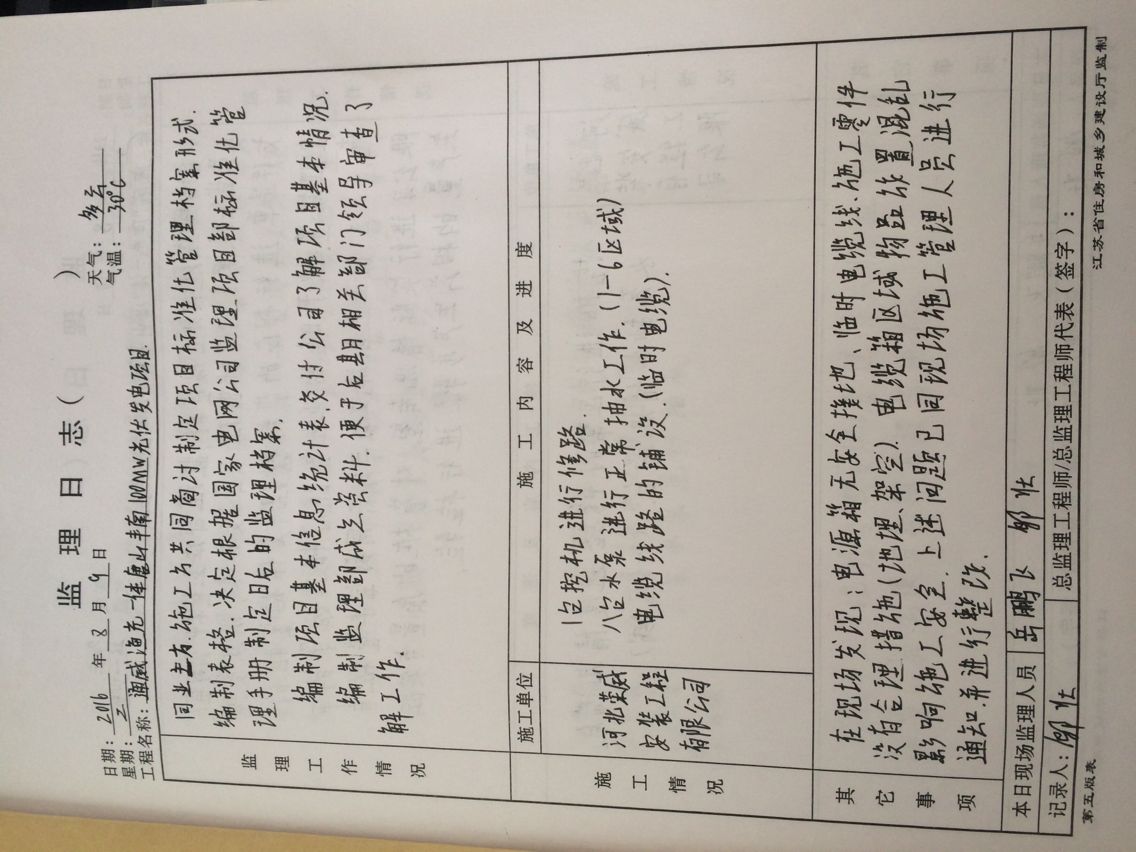 监 理 日 志（ ）
日期：2016 年 8 月 9 日
天气：多云
星期：二
气温：30℃
工程名称：通威渔光一体唐山丰南100MW光伏发电项目.
监理工作情况
同业主方.施工方共同商讨制定项目标准化管理档案形式.
编制表格.决定根据国家电网公司监理项目部标准化管
理手册制定日后的监理档案.
编制项目基本信息统计表.交付公司了解项目基本情况.
编制监理部成立资料.便于后期相关部门领导审查了
解工作.
施工情况
施工单位
施 工 内 容 及 进 度
河北荣威
安装工程
有限公司
1台挖机进行修路.
八台水泵进行正常抽水工作.(1-6区域)
电缆线路的铺设.(临时电缆).
其它事项
在现场发现：电源箱无安全接地、临时电缆线.施工零件
没有合理措施(地埋、架空).电缆箱区域物品放置混乱
影响施工安全.上述问题已同现场施工管理人员进行
通知.并进行整改.
本日现场监理人员
岳鹏飞 邹壮
记录人：邹壮
总监理工程师/总监理工程师代表（签字）：
第五版表
江苏省住房和城乡建设厅监制